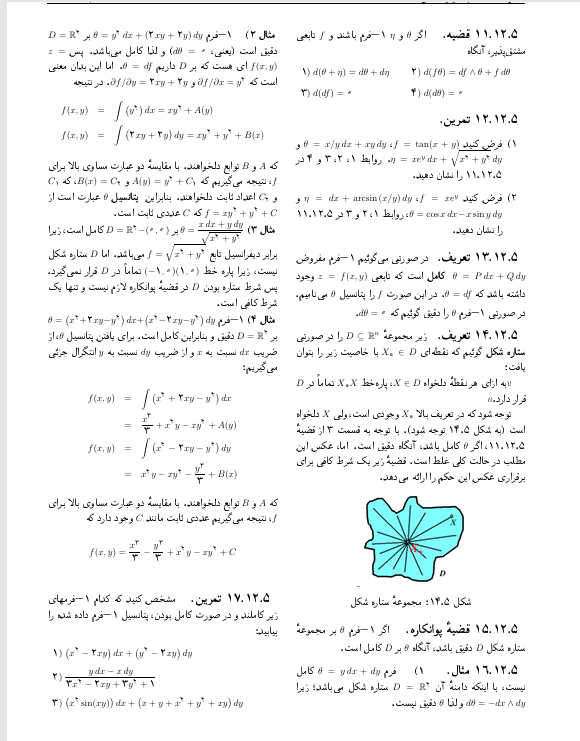 ۱۱.۱۲.۵ قضیه. اگر θ و η ۱−فرم باشند و f تابعی
مشتق‌پذیر، آنگاه
۱) d(θ + η) = dθ + dη ۲) d(fθ) = df ∧ θ + f dθ
۳) d(df) = ۰ ۴) d(dθ) = ۰
۱۲.۱۲.۵ تمرین.
۱) فرض کنید f = tan(x + y)، θ = x/y dx + xy dy و
η = xeʸ dx + √(x² + y²) dy. روابط ۱، ۲، ۳ و ۴ در
۱۱.۱۲.۵ را نشان دهید.
۲) فرض کنید f = xeʸ، η = dx + arcsin(x/y) dy و
θ = cos x dx − x sin y dy، روابط ۱، ۲ و ۳ در ۱۱.۱۲.۵
را نشان دهید.
۱۳.۱۲.۵ تعریف. در صورتی می‌گوئیم ۱−فرم مفروض
θ = P dx + Q dy کامل است که تابعی z = f(x, y) وجود
داشته باشد که θ = df. در این صورت f را پتانسیل θ می‌نامیم.
در صورتی ۱−فرم θ را دقیق گوئیم که dθ = ۰.
۱۴.۱۲.۵ تعریف. زیر مجموعهٔ D ⊆ ℝⁿ را در صورتی
ستاره شکل گوئیم که نقطه‌ای X₀ ∈ D با خاصیت زیر را بتوان
یافت:
«به ازای هر نقطهٔ دلخواه X ∈ D، پاره‌خط X₀X تماماً در D
قرار دارد.»
توجه شود که در تعریف بالا X₀ وجودی است، ولی X دلخواه
است (به شکل ۱۴.۵ توجه شود). با توجه به قسمت ۳ از قضیهٔ
۱۱.۱۲.۵، اگر θ کامل باشد، آنگاه دقیق است. اما، عکس این
مطلب در حالت کلی غلط است. قضیهٔ زیر یک شرط کافی برای
برقراری عکس این حکم را ارائه می‌دهد.
X
D
شکل ۱۴.۵: مجموعهٔ ستاره شکل
۱۵.۱۲.۵ قضیهٔ پوانکاره. اگر ۱−فرم θ بر مجموعهٔ
ستاره شکل D دقیق باشد، آنگاه θ بر D کامل است.
۱۶.۱۲.۵ مثال. ۱) فرم θ = y dx + dy کامل
نیست، با اینکه دامنهٔ آن D = ℝ² ستاره شکل می‌باشد؛ زیرا
dθ = −dx ∧ dy و لذا θ دقیق نیست.
مثال ۲) ۱−فرم θ = y² dx + (۲xy + ۲y) dy بر D = ℝ²
دقیق است (یعنی، dθ = ۰) و لذا کامل می‌باشد. پس z =
f(x, y) ای هست که بر D داریم θ = df. اما این بدان معنی
است که ∂f/∂x = y² و ∂f/∂y = ۲xy + ۲y. در نتیجه
f(x, y) = ∫ (y²) dx = xy² + A(y)
f(x, y) = ∫ (۲xy + ۲y) dy = xy² + y² + B(x)
که A و B توابع دلخواهند. با مقایسهٔ دو عبارت مساوی بالا برای
f، نتیجه می‌گیریم که A(y) = y² + C₁ و B(x) = C₂، که C₁
و C₂ اعداد ثابت دلخواهند. بنابراین پتانسیل θ عبارت است از
f = xy² + y² + C که C عددی ثابت است.
مثال ۳) θ = (x dx + y dy)/√(x² + y²) بر D = ℝ² − (۰, ۰) کامل است، زیرا
برابر دیفرانسیل تابع f = √(x² + y²) می‌باشد. اما D ستاره شکل
نیست، زیرا پاره خط (۱, ۰)(−۱, ۰) تماماً در D قرار نمی‌گیرد.
پس شرط ستاره بودن D در قضیهٔ پوانکاره لازم نیست و تنها یک
شرط کافی است.
مثال ۴) ۱−فرم θ = (x²+۲xy−y²) dx+(x²−۲xy−y²) dy
بر D = ℝ² دقیق و بنابراین کامل است. برای یافتن پتانسیل θ، از
ضریب dx نسبت به x و از ضریب dy نسبت به y انتگرال جزئی
می‌گیریم:
f(x, y) = ∫ (x² + ۲xy − y²) dx
= x³/۳ + x²y − xy² + A(y)
f(x, y) = ∫ (x² − ۲xy − y²) dy
= x²y − xy² − y³/۳ + B(x)
که A و B توابع دلخواهند. با مقایسهٔ دو عبارت مساوی بالا برای
f، نتیجه می‌گیریم عددی ثابت مانند C وجود دارد که
f(x, y) = x³/۳ − y³/۳ + x²y − xy² + C
۱۷.۱۲.۵ تمرین. مشخص کنید که کدام ۱−فرمهای
زیر کاملند و در صورت کامل بودن، پتانسیل ۱−فرم داده شده را
بیابید:
۱) (x² − ۲xy) dx + (y² − ۲xy) dy
۲) (y dx − x dy)/(۳x² − ۲xy + ۳y² + ۱)
۳) (x² sin(xy)) dx + (x + y + x² + y² + xy) dy